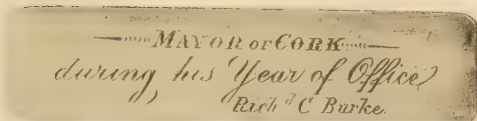 MAYOR OF CORK
during his Year of Office
Richd C Burke.